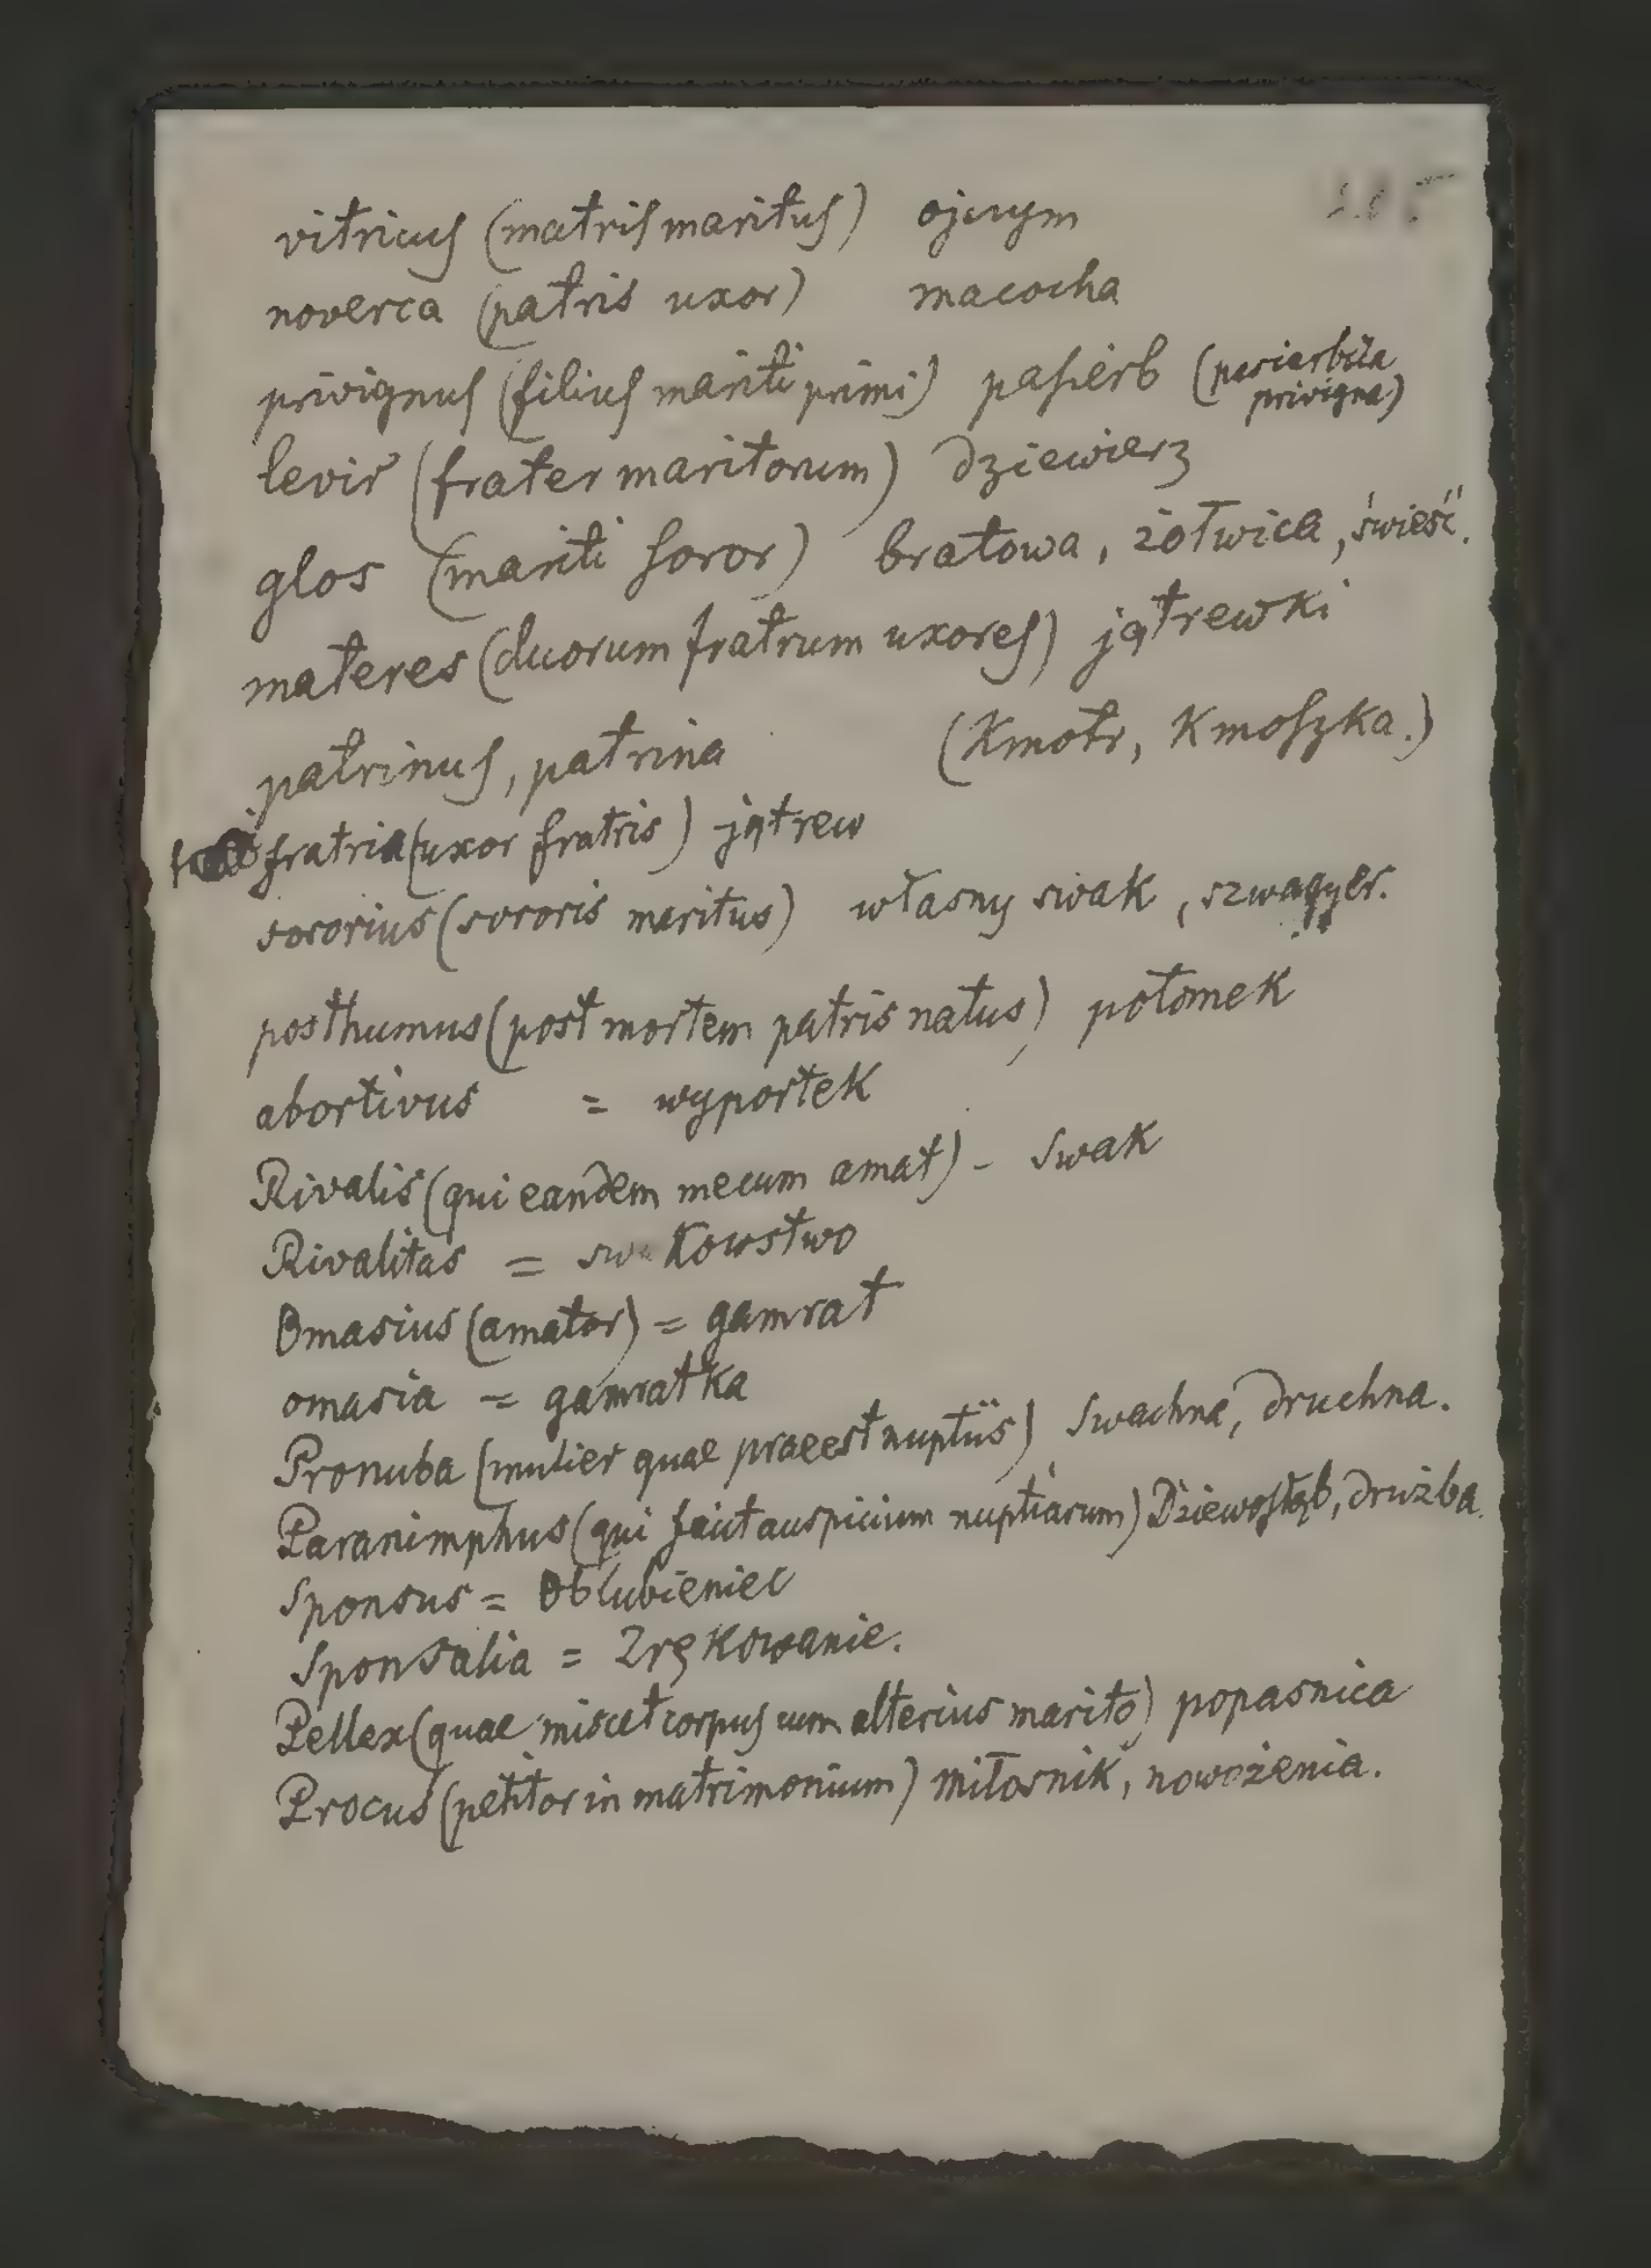 vitricus (matris maritus) ojczym
noverca (patris uxor) macocha
privignus (filius mariti primi) pasierb (pasierbica
privigna)
levir (frater maritorum) dziewierz
glos (mariti soror) bratowa, żołwica, świeść.
materes (duorum fratrum uxores) jątrewki
patrinus, patrina (Kmotr, Kmoszka.)
fratria (uxor fratris) jątrew
sororius (sororis maritus) własny swak, szwagyer.
posthumus (post mortem patris natus) potomek
abortivus = wyportek
Rivalis (qui eandem mecum amat) - Swak
Rivalitas = swakowstwo
Omasius (amator) = gamrat
omasia = gamratka
Pronuba (mulier quae praeest nuptiis) Swachna, druchna.
Paranimphus (qui facit auspicium nuptiarum) Dziewosłąb, drużba.
Sponsus = Oblubieniec
Sponsalia = Zrękowanie.
Pellex (quae miscet corpus cum alterius marito) popasnica
Procus (petitor in matrimonium) miłosnik, nowożenia.